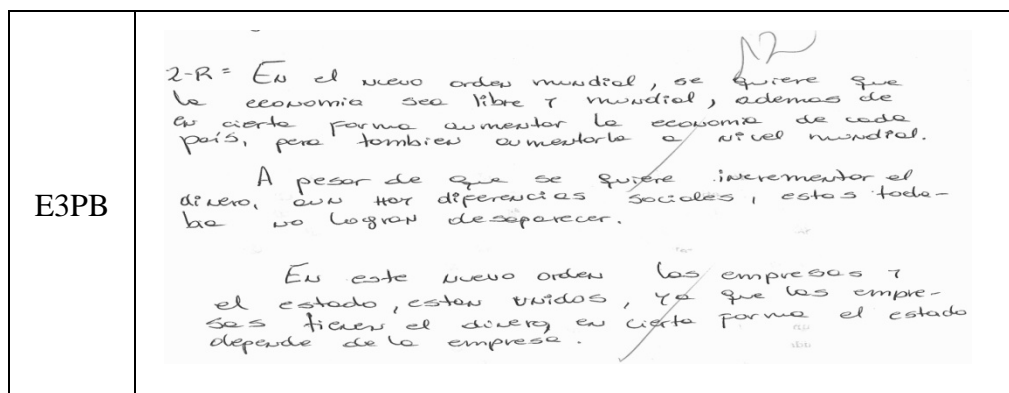 E3PB
2-R= En el nuevo orden mundial, se quiere que
la economia sea libre y mundial, ademas de
en cierta forma aumentar la economia de cada
país, pero tambien aumentarla a nivel mundial.
A pesar de que se quiere incrementar el
dinero, aun hay diferencias sociales, estas toda-
ba no logran desaparecer.
En este nuevo orden las empresas y
el estado, estan unidos, ya que las empre-
sas tienen el dinero, en cierta forma el estado
depende de la empresa.